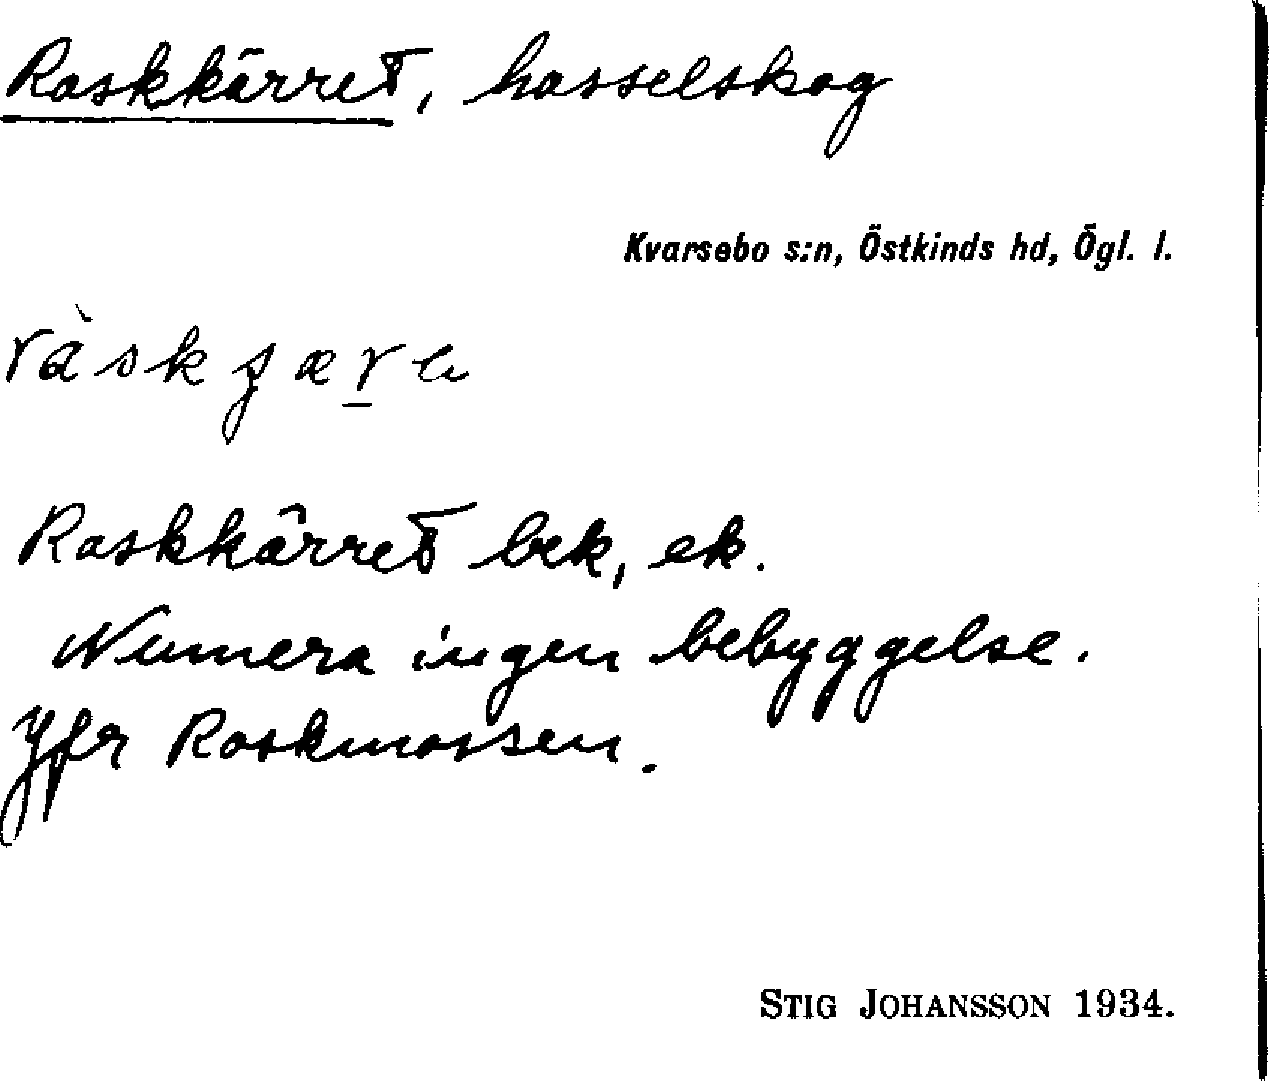 Raskkärret, hasselskog
Kvarsebo s:n, Östkinds hd, Ögl. l.
Raskkärret bek, ek.
Numera ingen bebyggelse.
Jfr Raskmossen.
STIG JOHANSSON 1934.